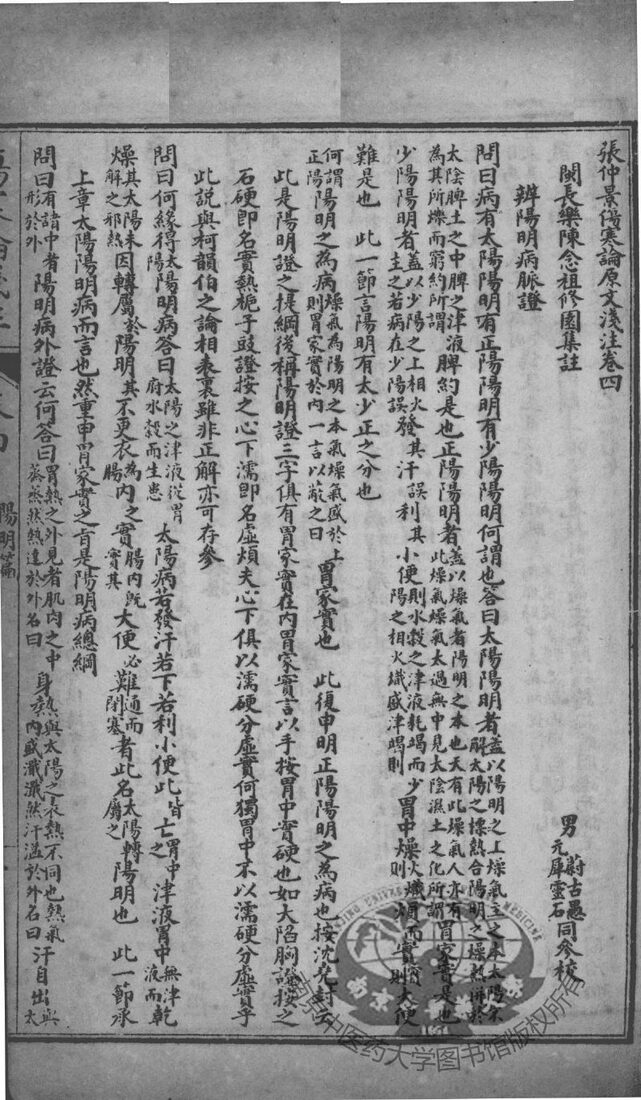 張仲景傷寒論原文淺注卷四
閩長樂陳念祖修園集註
男 蔚古愚 元犀靈石 同參校
辨陽明病脈證
問曰病有太陽陽明有正陽陽明有少陽陽明何謂也答曰太陽陽明者蓋以陽明之上燥氣主之本太陽不解太陽之標熱合陽明之燥熱併於
太陰脾土之中脾之津液為其所爍而窮約所謂脾約是也正陽陽明者蓋以燥氣者陽明之本也天有此燥氣人亦有此燥氣燥氣太過無中見太陰濕土之化所謂胃家實是也
少陽陽明者蓋以少陽之上相火主之若病在少陽誤發其汗誤利其小便則水穀之津液耗竭而少陽之相火熾盛津竭則胃中燥火熾則煩而實實則大便
難是也 此一節言陽明有太少正之分也
何謂正陽陽明之為病燥氣為陽明之本氣燥氣盛於上則胃家實於內一言以蔽之曰胃家實也 此復申明正陽陽明之為病也按沈堯封云
此是陽明證之提綱後稱陽明證三字俱有胃家實在內胃家實言以手按胃中實硬也如大陷胸證按之
石硬即名實熱梔子豉證按之心下濡即名虛煩夫心下俱以濡硬分虛實何獨胃中不以濡硬分虛實乎
此說與柯韻伯之論相表裏雖非正解亦可存參
問曰何緣得太陽陽明病答曰太陽之津液從胃府水穀而生患太陽病若發汗若下若利小便此皆亡胃中之津液胃中無津液而乾
燥其太陽未解之邪熱因轉屬於陽明其不更衣為腸內之實腸內既實其大便必難通而閉塞者此名太陽轉屬之陽明也 此一節承
上章太陽陽明病而言也然重申胃家實之旨是陽明病總綱
問曰有諸中者形於外陽明病外證云何答曰胃熱之外見者肌肉之中蒸蒸然熱達於外名曰身熱與太陽之表熱不同也熱氣內盛濈濈然汗溢於外名曰汗自出與太
陽明篇